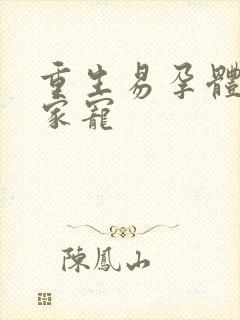 重生易孕體
家寵
陳鳳山